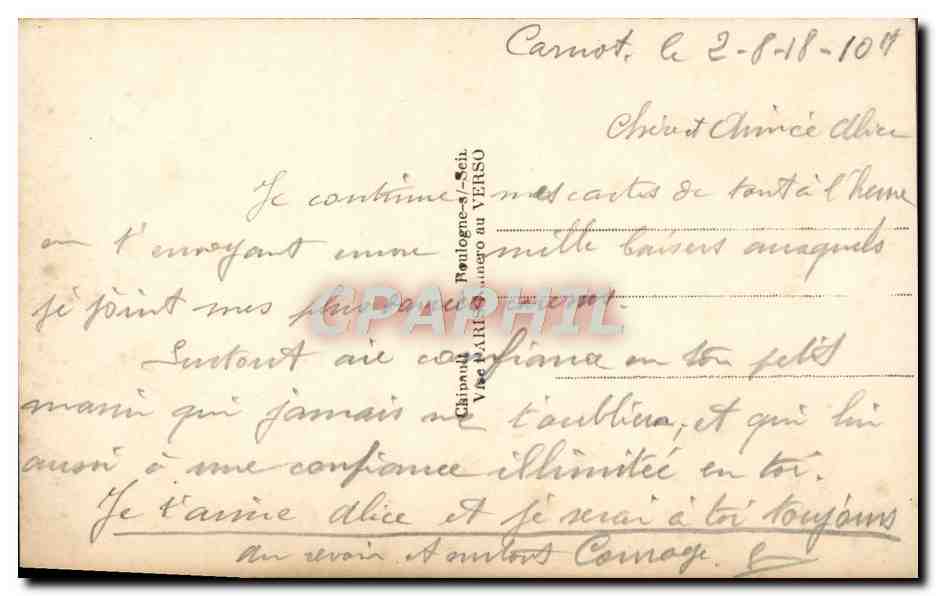 Carnot, le 2-8-18-10H
Chère et Aimée Alice
Je continue mes cartes de tout à l'heure
en t'envoyant encore mille baisers auxquels
je joint mes plus
Surtout aie confiance en ton petit
marin qui jamais ne t'oubliera, et qui lui
aussi à une confiance illimitée en toi.
Je t'aime Alice et je serai à toi toujours
au revoir et surtout Courage.
Chipault Boulogne-s/-Sein
Visé PARIS numéro au VERSO
CPAPHIL